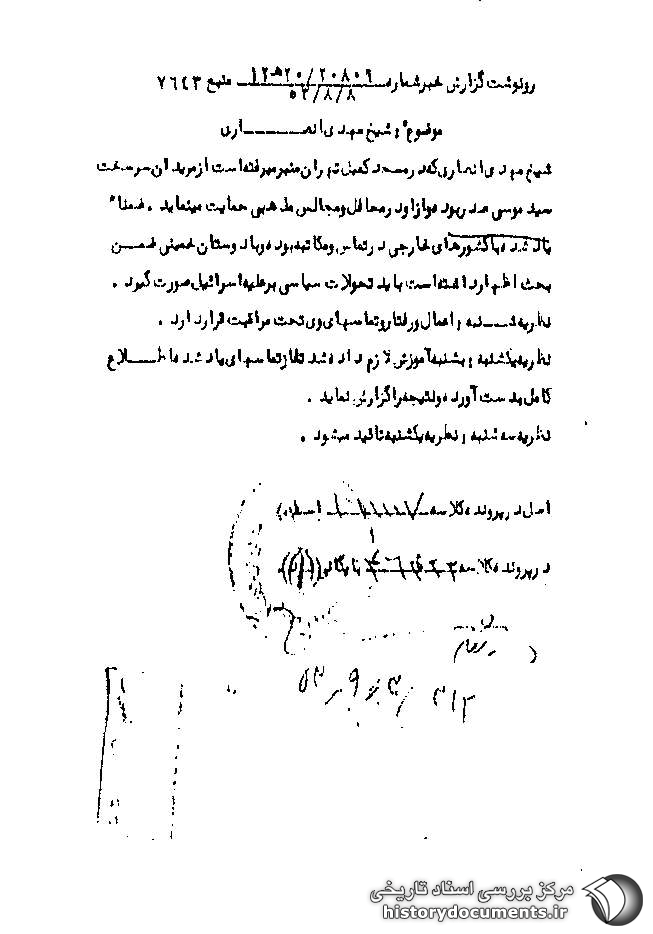 رونوشت گزارش خبر شماره ۲۰۸۰۶/۲۰ﻫ۱۲ منبع ۷۶۴۳
۵۳/۸/۸
موضوع : شیخ مهدی انصـــاری
شیخ مهدی انصاری که در مسجد کمیل تهران منبر میرفته است از مریدان سرسخت
سید موسی صدر بوده و از او در محافل و مجالس مذهبی حمایت مینماید . ضمنا"
یاد شده با کشورهای خارجی در تماس و مکاتبه بوده و با دوستان خمینی ضمن
بحث اظهار داشته است باید تحولات سیاسی بر علیه اسرائیل صورت گیرد .
نظریه شــنبه : اعمال و رفتار و تماسهای وی تحت مراقبت قرار دارد .
نظریه یکشنبه : بشنبه آموزش لازم داده شد تا از تماسهای یاد شده اطـــلاع
کامل بدست آورده و نتیجه را گزارش نماید .
نظریه سه شنبه : نظریه یکشنبه تائید میشود .
اصل در پرونده کلاسه
در پرونده کلاسه بایگانی
۳۱۲
۵۳/۹/۴
مرکز بررسی اسناد تاریخی
historydocuments.ir